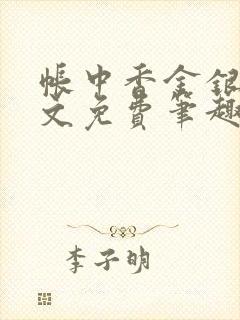 帐中香金银
文免费笔趣
李子明